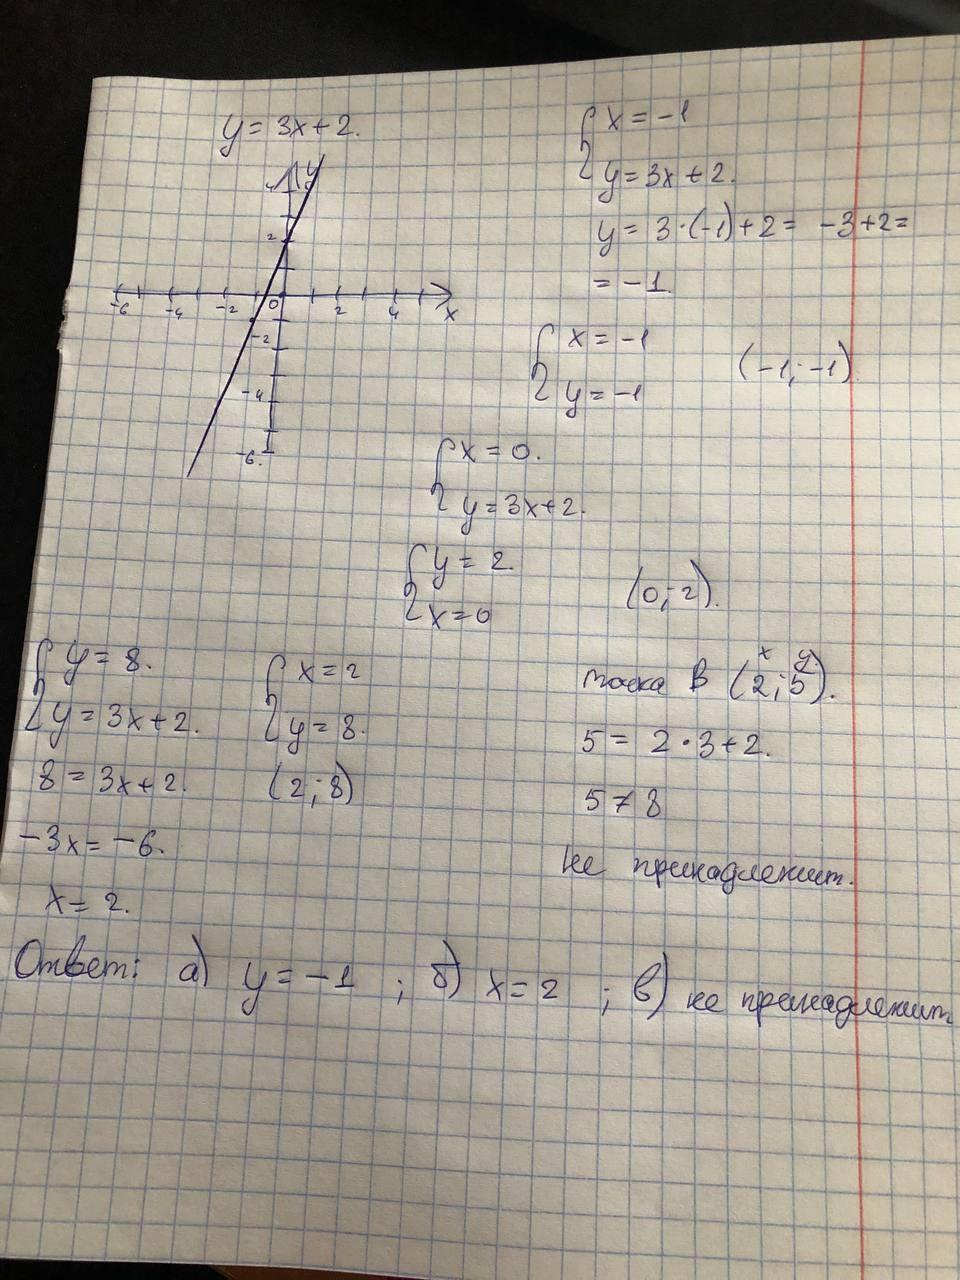 y = 3x + 2.
y
4
2
-6 -4 -2 0 2 4 x
-2
-4
-6.
{ x = -1
y = 3x + 2.
y = 3·(-1) + 2 = -3 + 2 =
= -1.
{ x = -1
y = -1
(-1; -1).
{ x = 0.
y = 3x + 2.
{ y = 2.
x = 0
(0; 2).
{ y = 8.
y = 3x + 2.
8 = 3x + 2.
-3x = -6.
x = 2.
{ x = 2
y = 8.
(2; 8)
x y
точка В (2; 5).
5 = 2·3 + 2.
5 ≠ 8
не принадлежит.
Ответ: а) y = -1 ; б) x = 2 ; в) не принадлежит